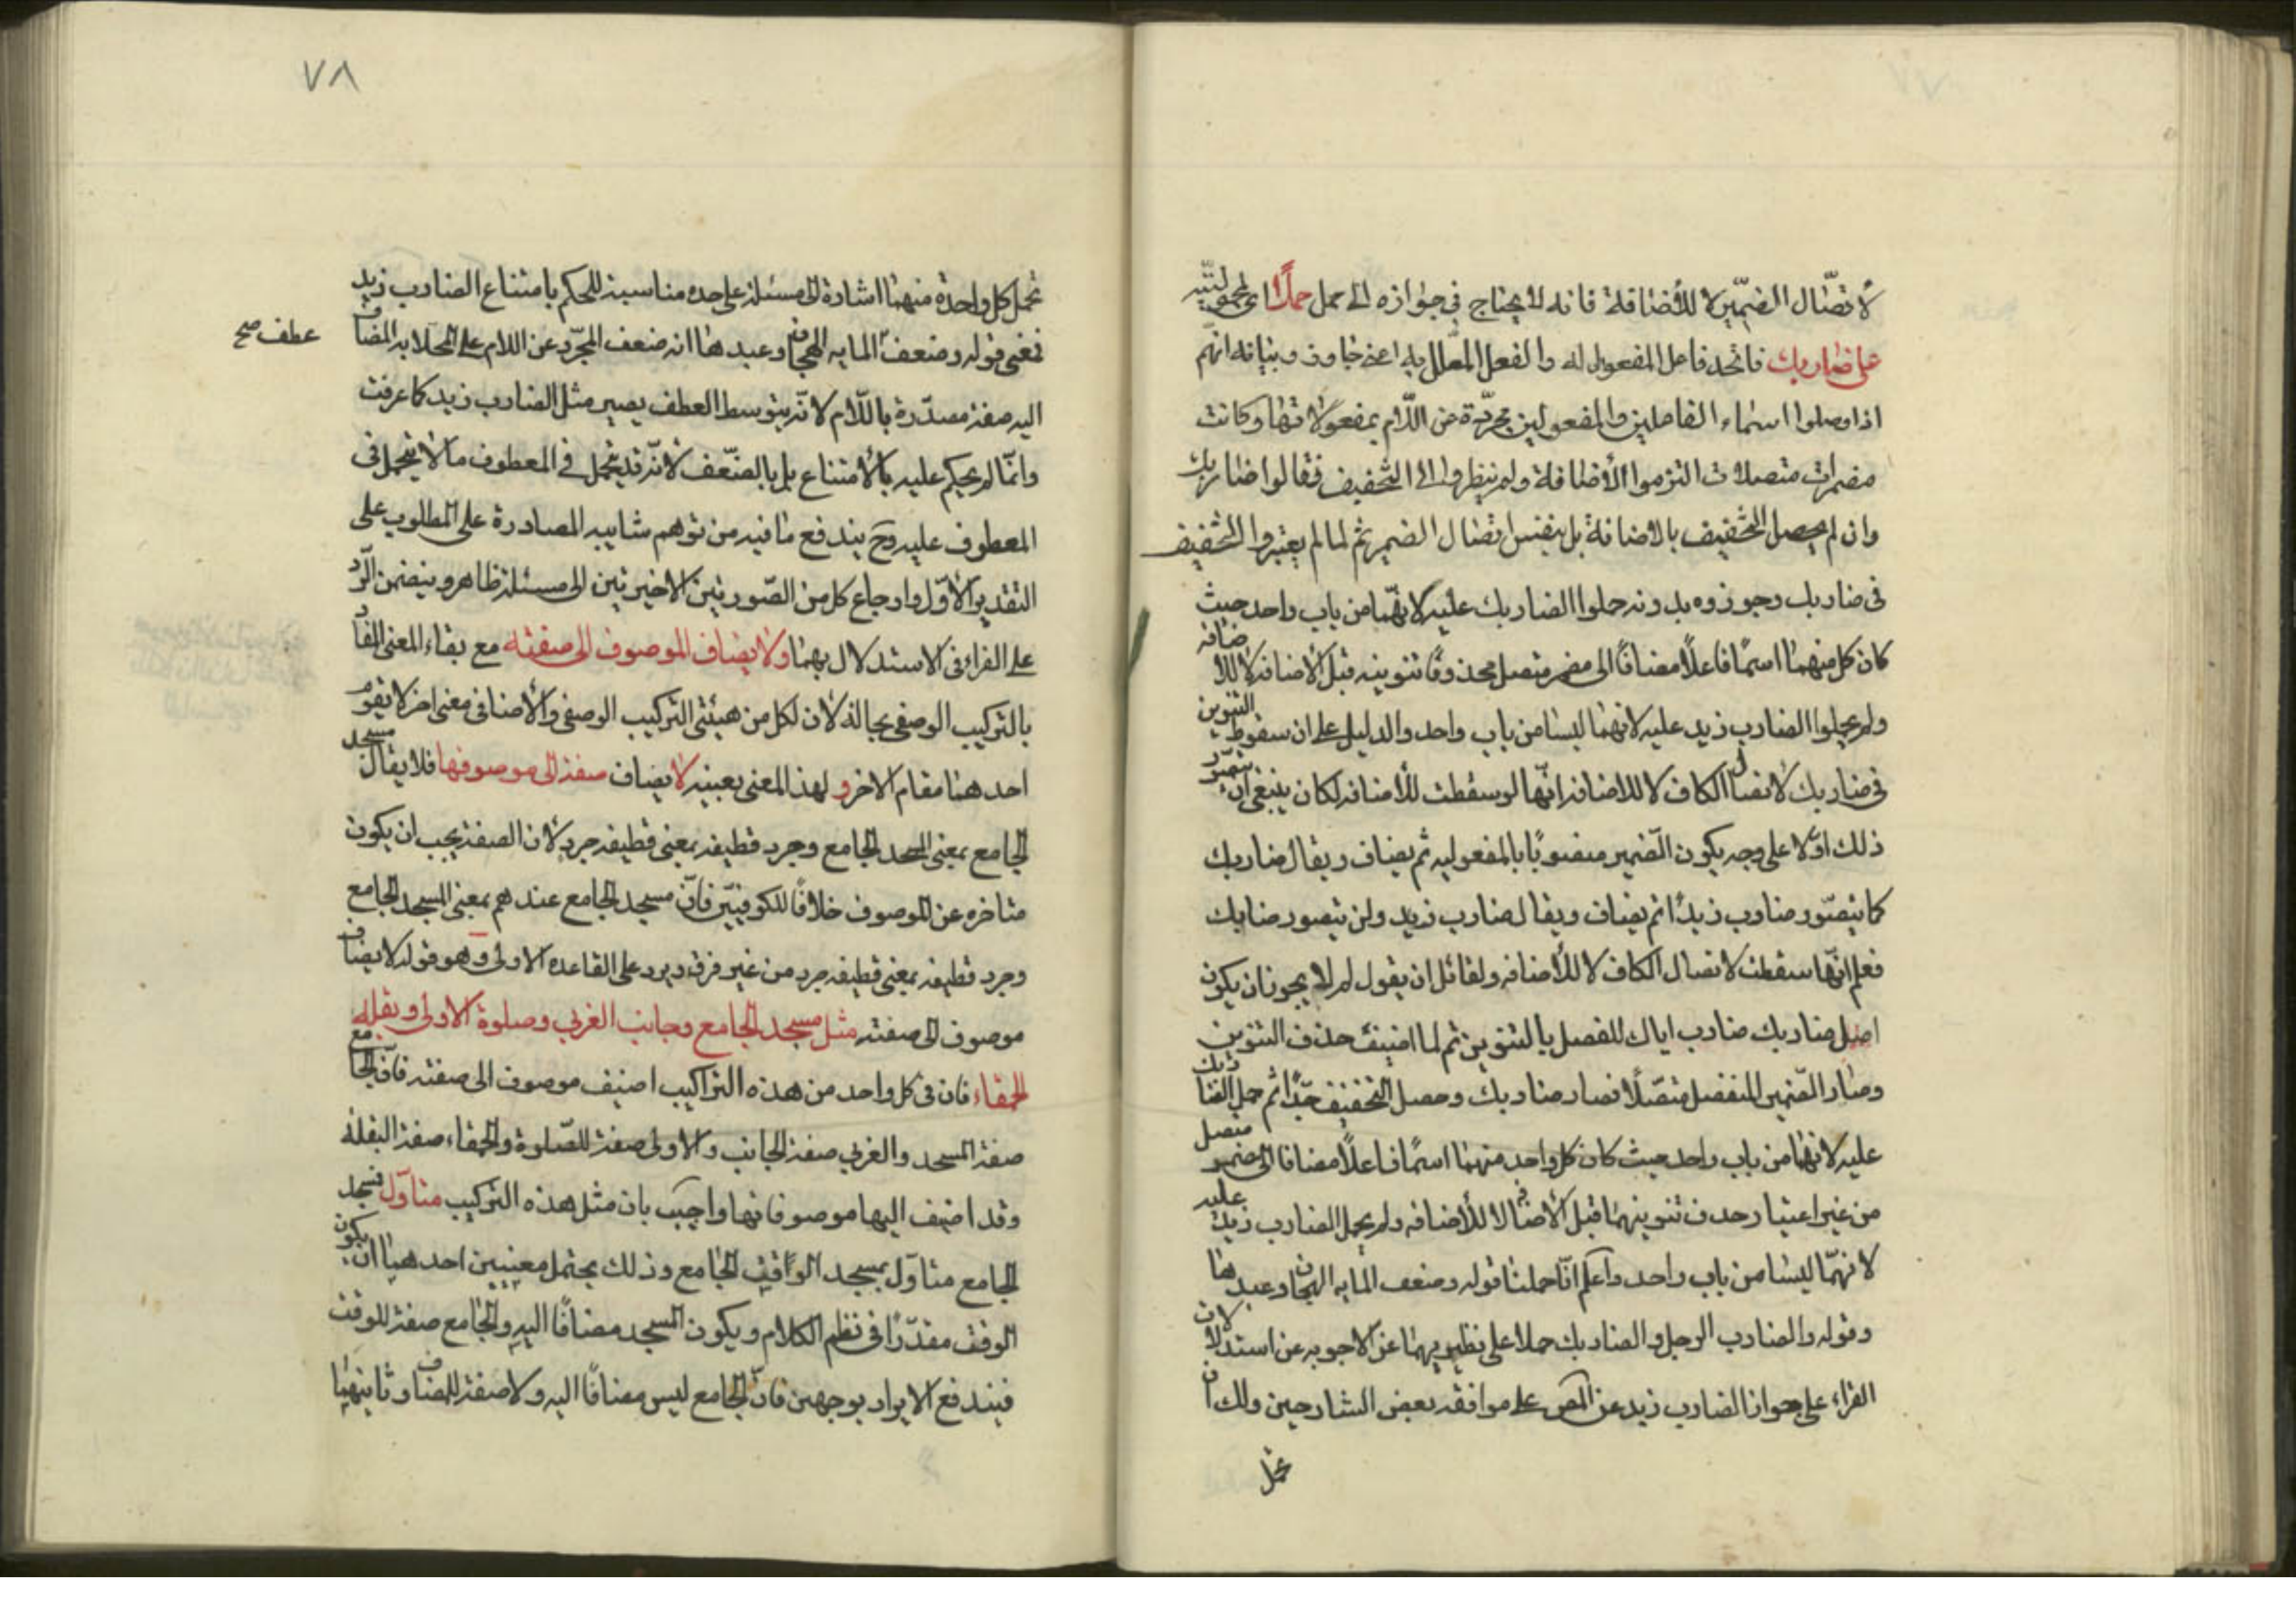 لاتصال الضمير لا للأضافة فانه لا يحتاج فى جوازه الى حمل حملا اى لمحموليته
على ضاربك فاتحد فاعل المفعول له والفعل المعلل به اعنى جاوز وبيانه انهم
اذا وصلوا اسماء الفاعلين والمفعولين مجردة عن اللام بمفعولاتها وكانت
مضمرات متصلات التزموا الأضافة ولم ينظروا الى التخفيف فقالوا ضاربك
وان لم يحصل التخفيف بالاضافة بل بنفس اتصال الضمير ثم لما لم يعتبروا التخفيف
فى ضاربك وجوزوه بدونه حملوا الضاربك عليه لانهما من باب واحد حيث
كان كل منهما اسمًا فاعلاً مضافًا الى مضمر متصل محذوفًا تنوينه قبل الأضافه لا للأضافه
ولم يحملوا الضارب زيد عليه لانهما ليسا من باب واحد والدليل على ان سقوط التنوين
فى ضاربك لاتصال الكاف لا للاضافه انها لو سقطت للأضافه لكان ينبغى ان يتصور
ذلك اوّلا على وجه يكون الضمير منصوبًا بالمفعوليه ثم يضاف ويقال ضاربك
كما يتصور ضارب زيدًا ثم يضاف ويقال ضارب زيد ولن يتصور ضاربك
فعلم انها سقطت لاتصال الكاف لا للأضافه ولقائل ان يقول لم لا يجوز ان يكون
اصل ضاربك ضارب اياك للفصل بالتنوين ثم لما اضيف حذف التنوين
وصار الضمير المنفصل متصلاً فصار ضاربك وحصل التخفيف جدًا ثم حمل الضاربك
عليه لانهما من باب واحد حيث كان كل واحد منهما اسمًا فاعلاً مضافا الى ضمير متصل
من غير اعتبار حذف تنوينهما قبل الأضافه لا للأضافه ولم يحمل الضارب زيد عليه
لانهما ليسا من باب واحد واعلم انّا حملنا قوله وضعف المايه الهجان وعبدها
وقوله والضارب الرجل والضاربك حملا على نظيريهما عن الاجوبه عن استدلالات
الفراء على جواز الضارب زيد عن المص على موافقه بعض الشارحين ولك ان
تحمل
٧٨
تحمل كل واحدة منهما اشارة الى مسئلة على حده مناسبة للحكم بامتناع الضارب زيد
فمعنى قوله وضعف المايه الهجان وعبدها انه ضعف المجرّد عن اللام على المحلا به المضاف
عطف صح
اليه صفة مصدّرة باللّام لانّه بتوسط العطف يصير مثل الضارب زيد كما عرفت
وانّما لم يحكم عليه بالأمتناع بل بالضعف لانّه قد يتحمل فى المعطوف ما لا يتحمل فى
المعطوف عليه وح يندفع ما فيه من توهم شايبه المصادرة على المطلوب على
التقدير الأوّل وارجاع كل من الصّورتين الاخيرتين الى مسئلة ظاهر ويتضمن الرّد
على الفراء فى الاستدلال بهما ولا يضاف الموصوف الى صفته مع بقاء المعنى المفاد
بالتركيب الوصفى بحاله لان لكل من هيئتى التركيب الوصفى والأضافى معنى اخر لا يقوم
احدهما مقام الاخر و لهذا المعنى بعينه لا يضاف صفة الى موصوفها فلا يقال مسجد
الجامع بمعنى المسجد الجامع وجرد قطيفه بمعنى قطيفه جرد لان الصفة يجب ان يكون
متاخره عن الموصوف خلافًا للكوفييّن فانّ مسجد الجامع عندهم بمعنى المسجد الجامع
وجرد قطيفه بمعنى قطيفه جرد من غير فرق ويرد على القاعده الاولى وهو قوله لا يضاف
موصوف الى صفته مثل مسجد الجامع وجانب الغربى وصلوة الاولى وبقله
الحمقاء فان فى كل واحد من هذه التراكيب اضيف موصوف الى صفته فانّ الجامع
صفة المسجد والغربى صفة الجانب والاولى صفة للصّلوة والحمقاء صفة البقلة
وقد اضيف اليها موصوفاتها واجيب بان مثل هذه التركيب متاوّل فمسجد
الجامع متاوّل بمسجد الوقت الجامع وذلك يحتمل معنيين احدهما ان يكون
الوقت مقدّرا فى نظم الكلام ويكون المسجد مضافًا اليه والجامع صفة للوقت
فيندفع الايراد بوجهين فان الجامع ليس مضافًا اليه ولا صفة للمضاف وثانيهما